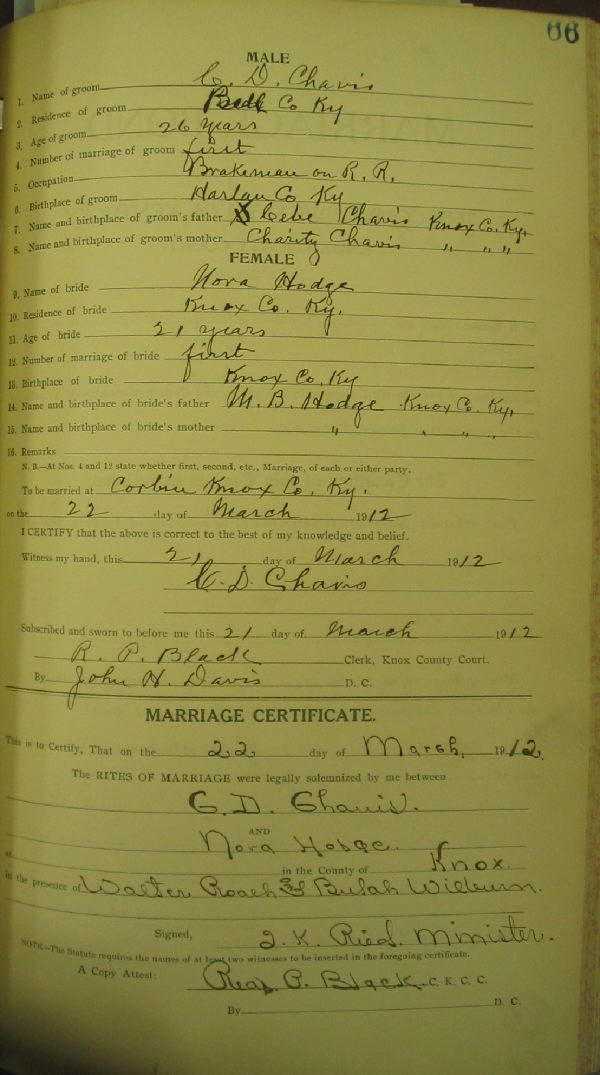 66
MALE
1. Name of groom C. D. Chavis
2. Residence of groom Bell Co Ky
3. Age of groom 26 years
4. Number of marriage of groom first
5. Occupation Brakeman on R. R.
6. Birthplace of groom Harlan Co Ky
7. Name and birthplace of groom's father Chavis Knox Co. Ky.
8. Name and birthplace of groom's mother Charity Chavis " " "
FEMALE
9. Name of bride Nora Hodge
10. Residence of bride Knox Co. Ky.
11. Age of bride 21 years
12. Number of marriage of bride first
13. Birthplace of bride Knox Co. Ky
14. Name and birthplace of bride's father M. B. Hodge Knox Co. Ky.
15. Name and birthplace of bride's mother " " " "
16. Remarks
N. B.—At Nos. 4 and 12 state whether first, second, etc., Marriage, of each or either party.
To be married at Corbin Knox Co. Ky.
on the 22 day of March 1912
I CERTIFY that the above is correct to the best of my knowledge and belief.
Witness my hand, this 21 day of March 1912
C. D. Chavis
Subscribed and sworn to before me this 21 day of March 1912
R. P. Black Clerk, Knox County Court.
By John H. Davis D. C.
MARRIAGE CERTIFICATE.
This is to Certify, That on the 22 day of March, 1912.
The RITES OF MARRIAGE were legally solemnized by me between
C. D. Chavis.
AND
Nora Hodge.
at in the County of Knox
in the presence of Walter Roach & Bulah Wilburn.
Signed, Ried. Minister.
NOTE—The Statute requires the names of at least two witnesses to be inserted in the foregoing certificate.
A Copy Attest: P. Black C. K. C. C.
By D. C.